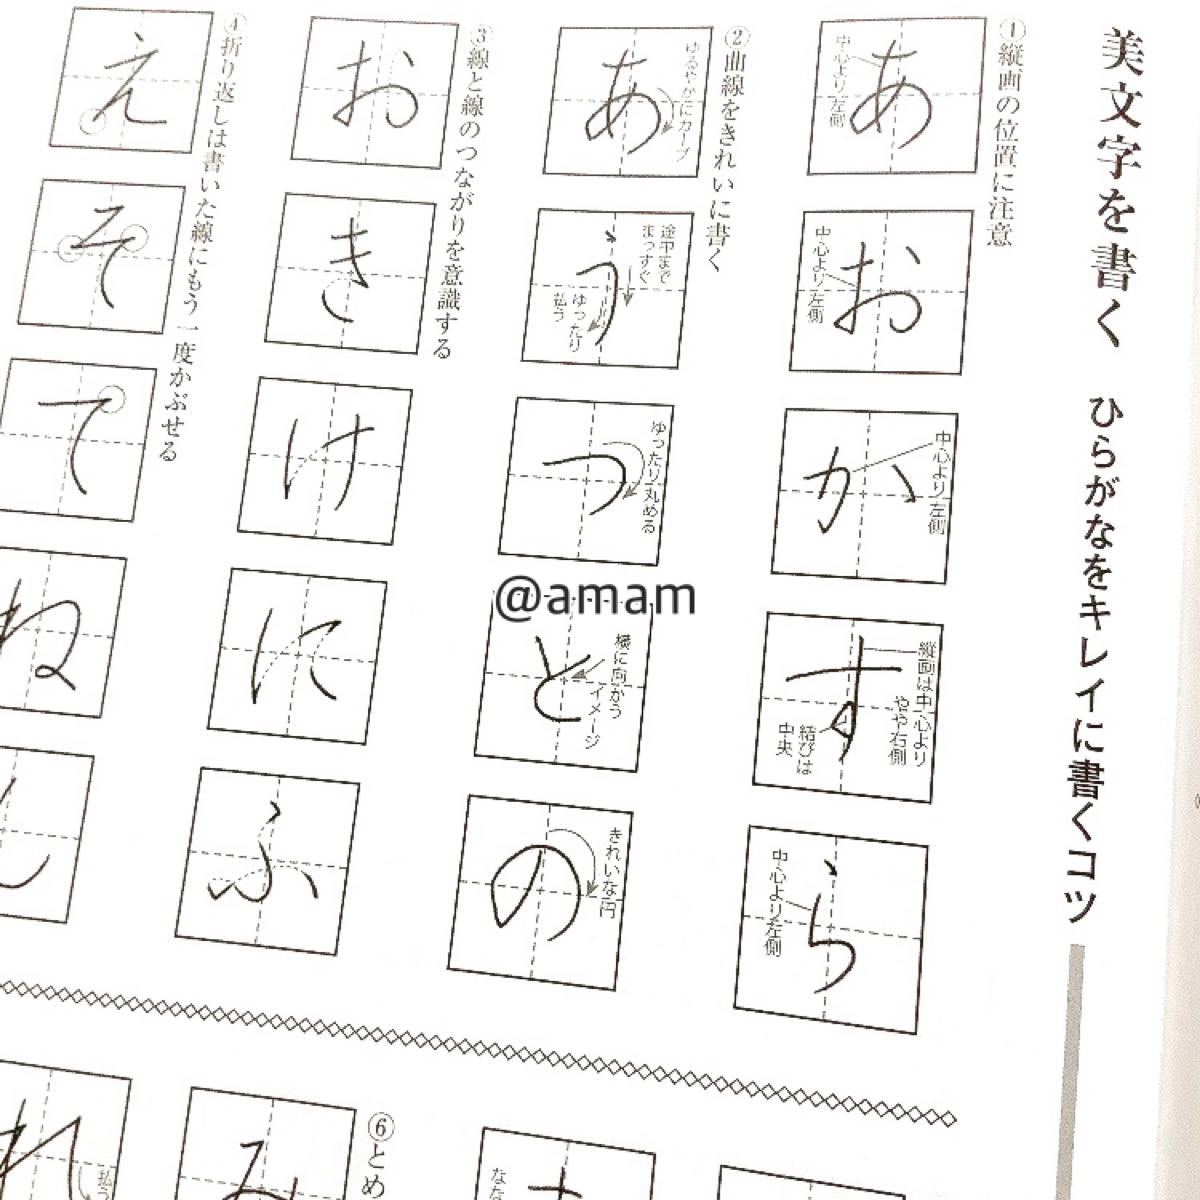 美文字を書く ひらがなをキレイに書くコツ
①縦画の位置に注意
あ
中心より左側
お
中心より左側
か
中心より左側
す
縦画は中心より
やや右側
結びは
中央
ら
中心より左側
②曲線をきれいに書く
あ
ゆるやかにカーブ
う
途中まで
まっすぐ
ゆったり
払う
つ
ゆったり丸める
と
横に向かう
イメージ
の
きれいな円
③線と線のつながりを意識する
お
き
け
に
ふ
④折り返しは書いた線にもう一度かぶせる
え
そ
て
ね
@amam
⑥とめ
み
れ
払う
なな